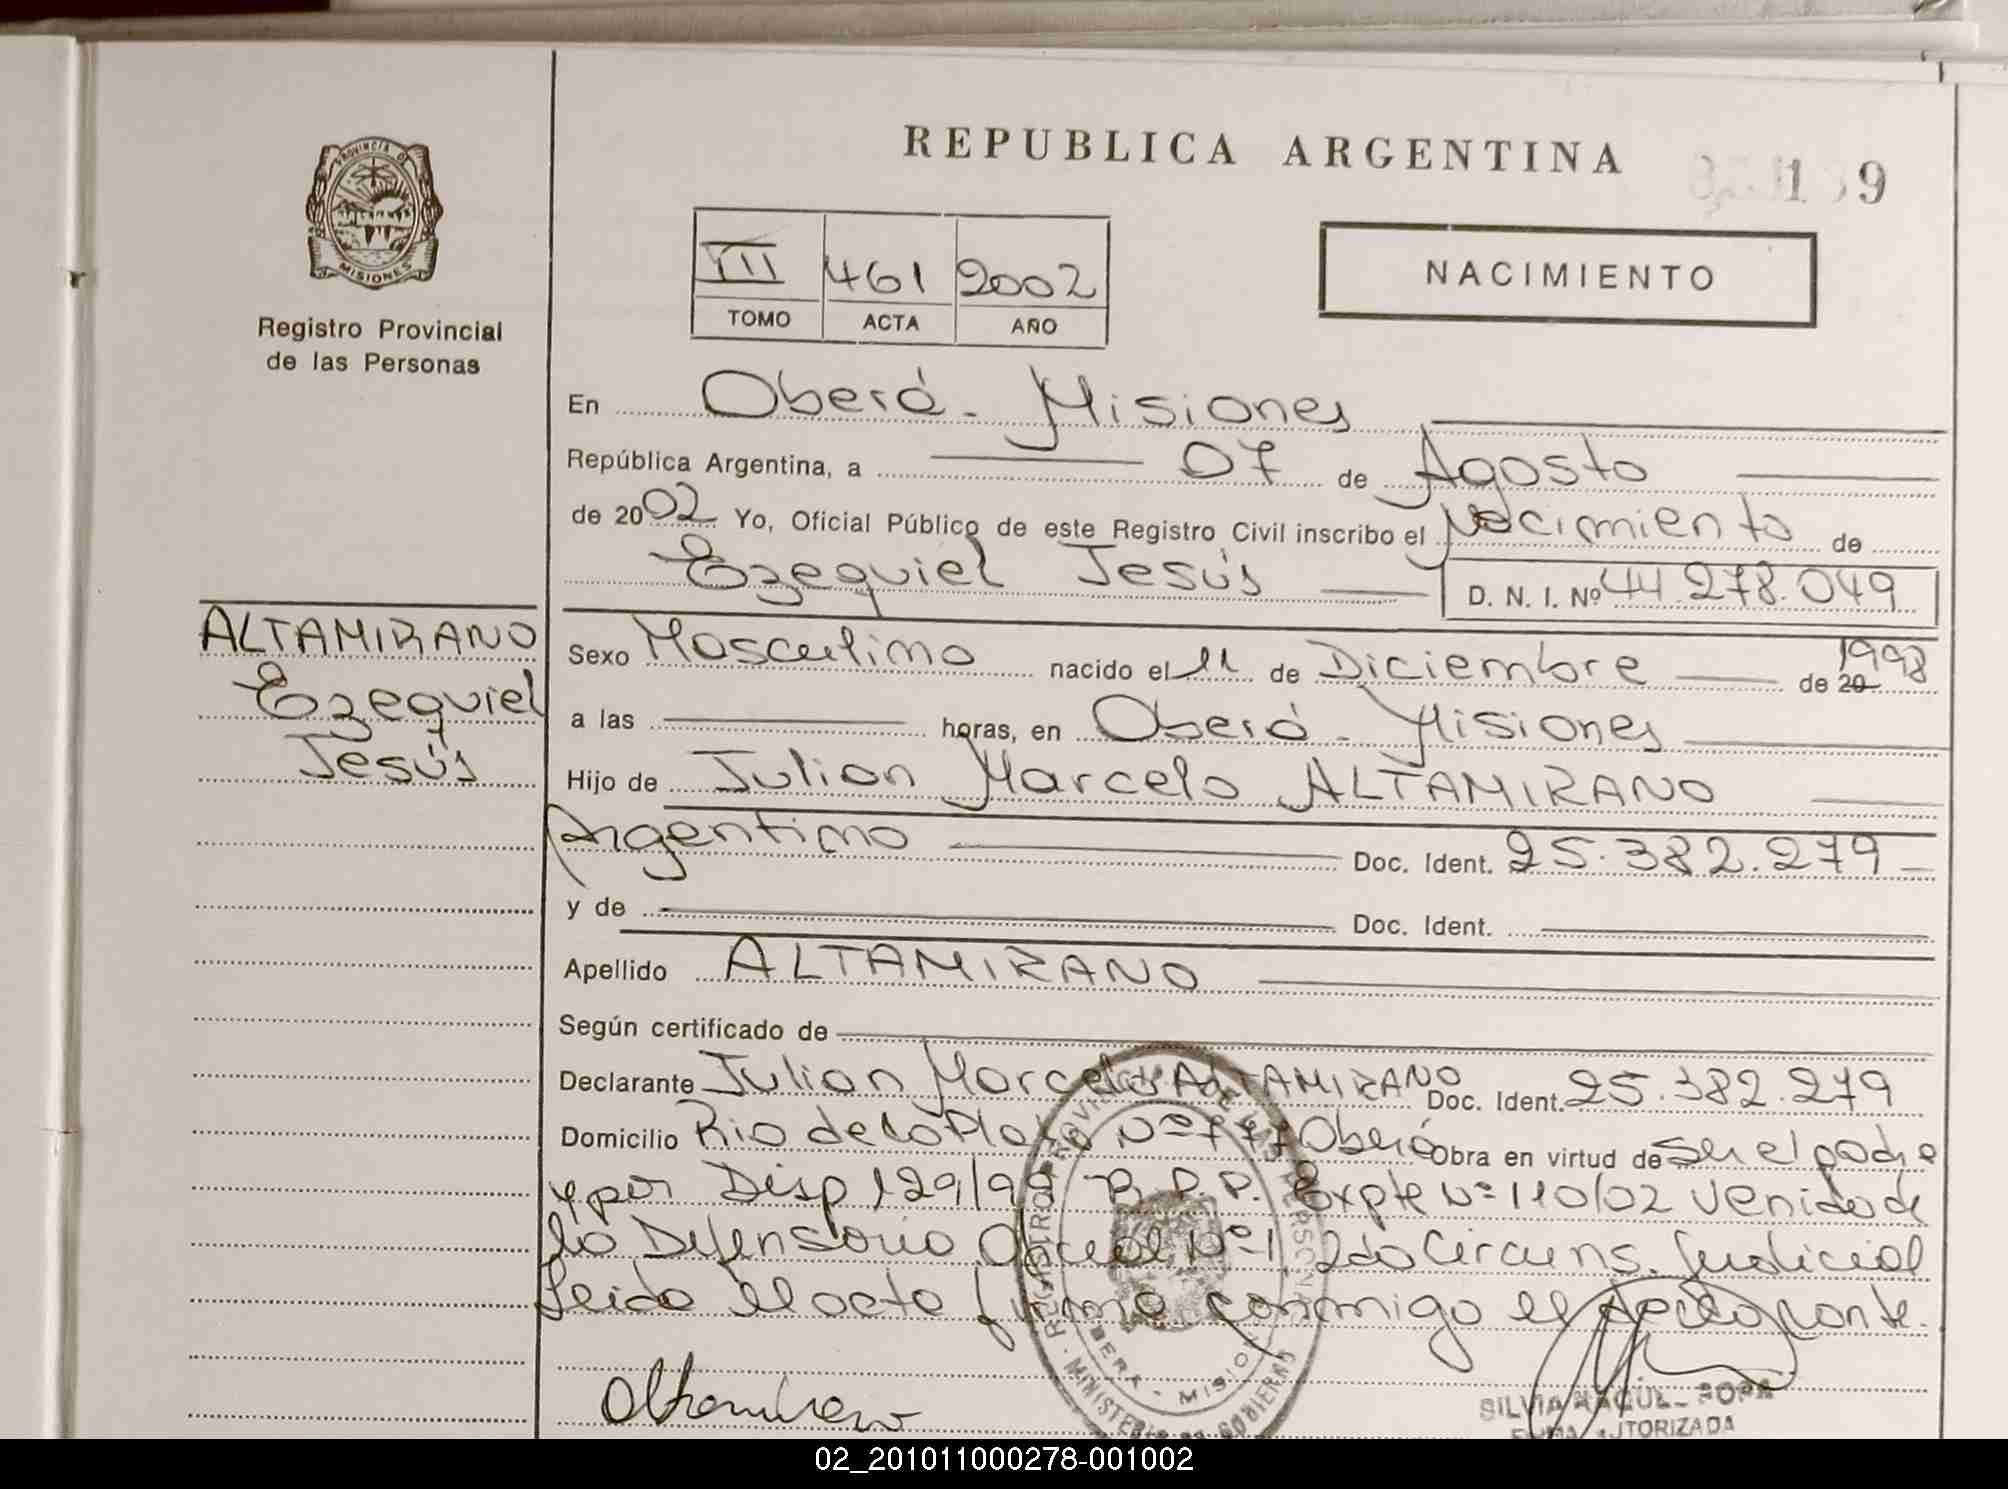 REPUBLICA ARGENTINA
PROVINCIA DE
MISIONES
Registro Provincial
de las Personas
III 461 2002
TOMO ACTA AÑO
NACIMIENTO
En Oberá - Misiones
República Argentina, a 07 de Agosto
de 2002 Yo, Oficial Público de este Registro Civil inscribo el Nacimiento de
Ezequiel Jesús D. N. I. Nº 44.278.049
ALTAMIRANO
Ezequiel
Jesús
Sexo Masculino nacido el 11 de Diciembre de 20 1998
a las horas, en Oberá - Misiones
Hijo de Julian Marcelo ALTAMIRANO
Argentino Doc. Ident. 25.382.279
y de Doc. Ident.
Apellido ALTAMIRANO
Según certificado de
Declarante Julian Marcelo ALTAMIRANO Doc. Ident. 25.382.279
Domicilio Rio de la Plata Nº 777 Oberá Obra en virtud de ser el padre
y por Disp 129/99 R.P.P. Expte Nº 110/02 venido de
la Defensoria Oficial Nº 1 2da Circuns. Judicial
Leida el acta firma conmigo el declarante.
Altamirano
SILVIA RAQUEL
AUTORIZADA
02_201011000278-001002